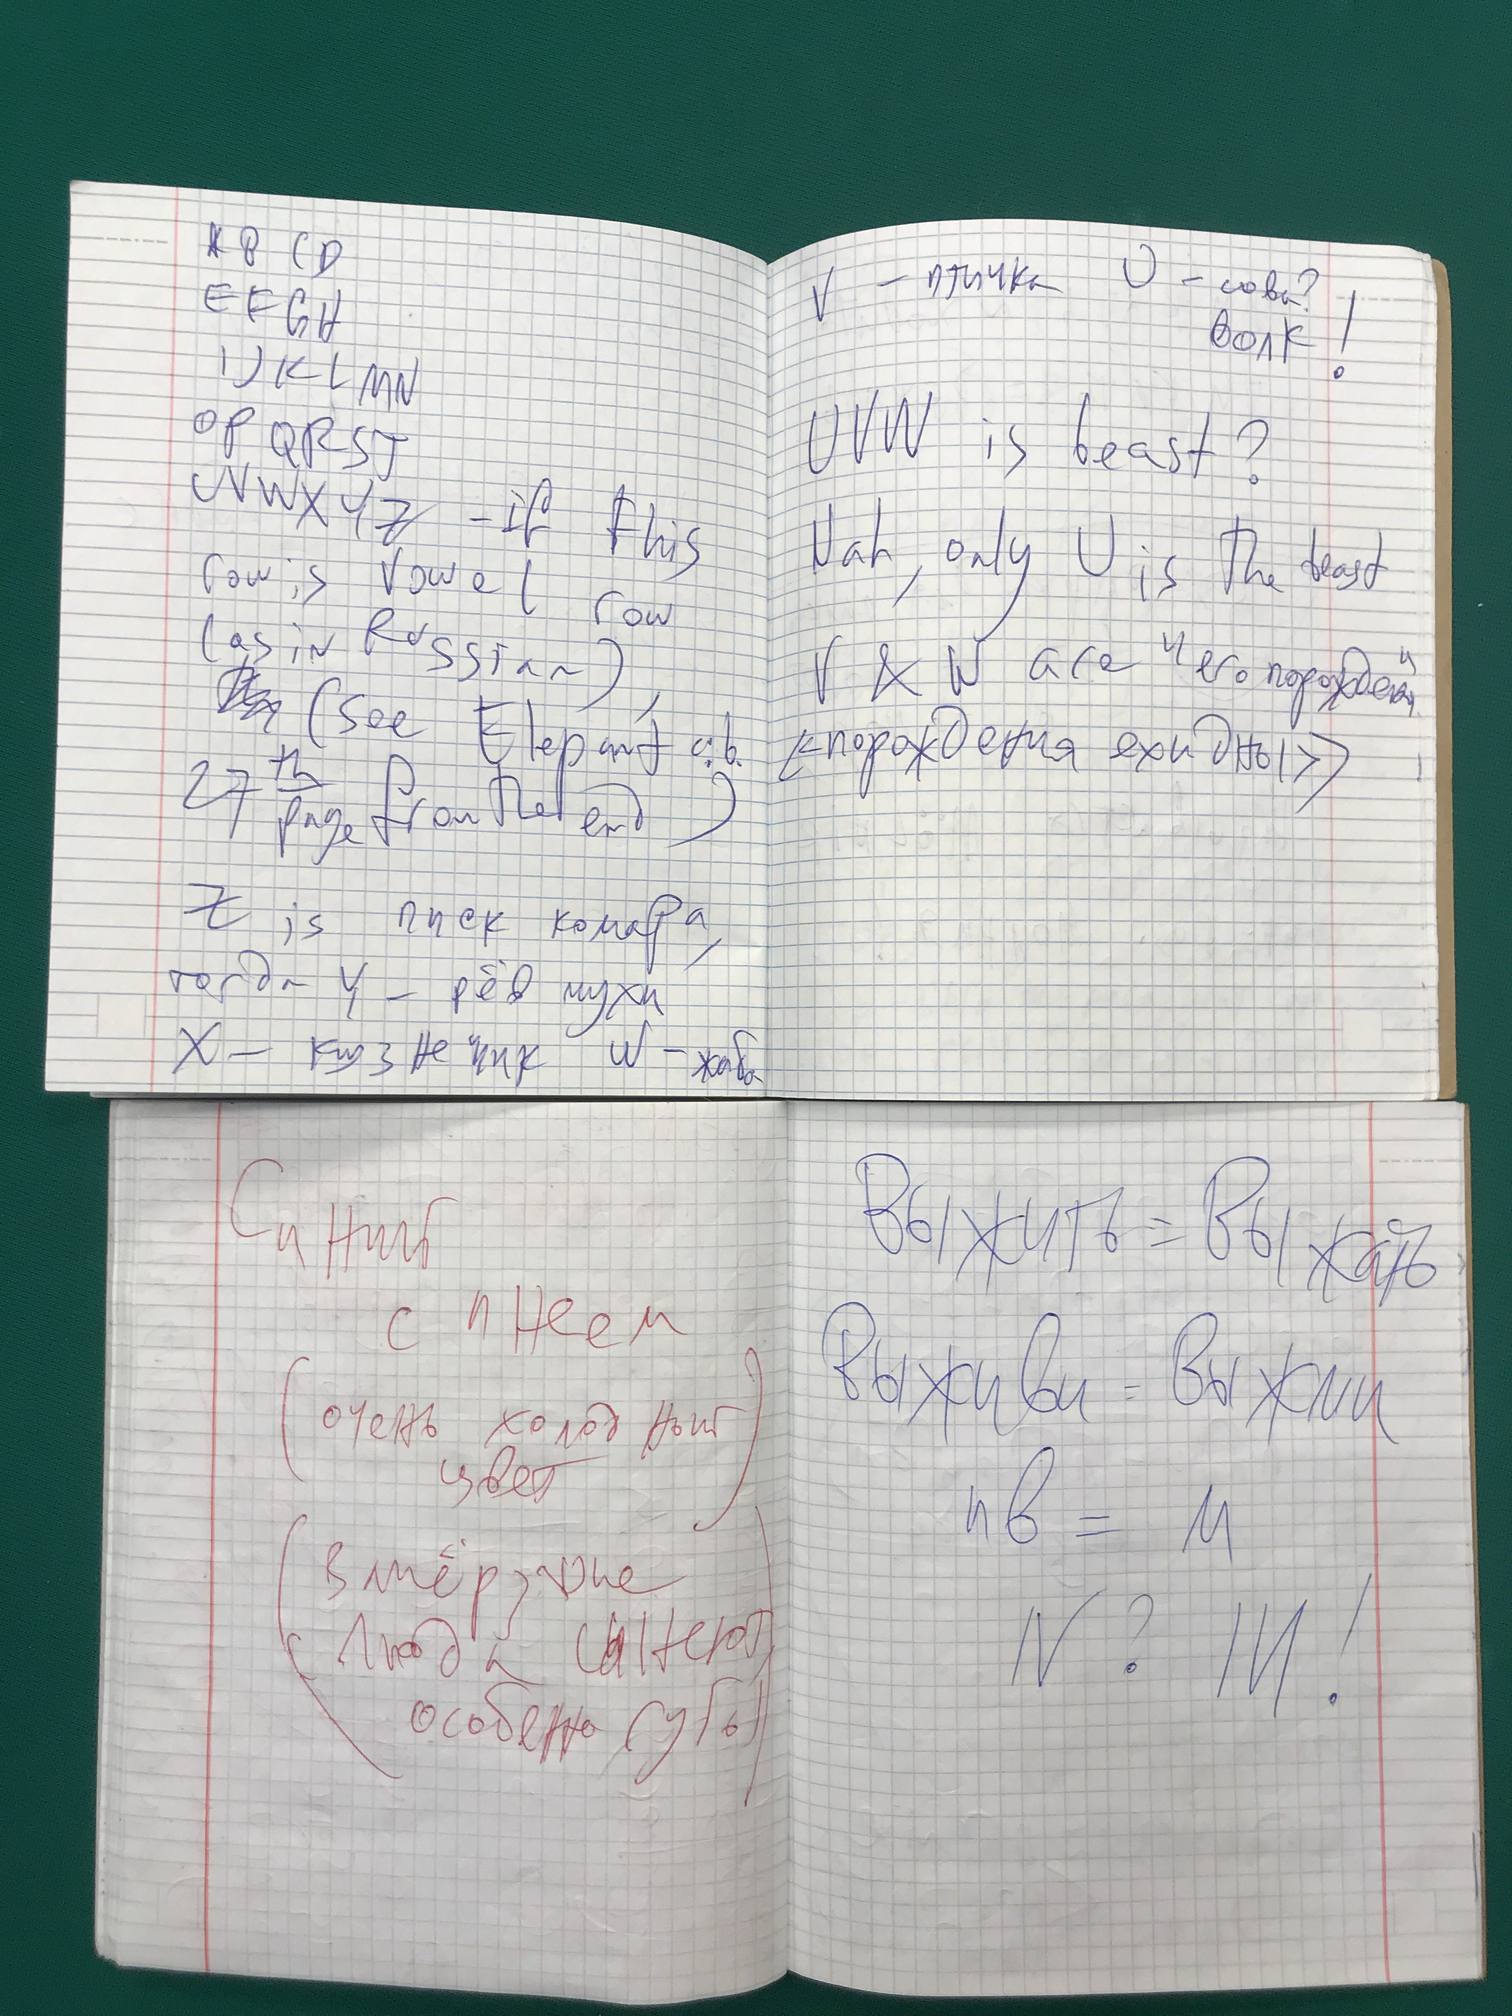 ABCD
EFGH
IJKLMN
OPQRST
UVWXYZ - if this
row is vowel row
(as in Russian),
(see Elepant c.b.
27th page from the end)
Z is писк комара,
тогда Y - рёв мухи
X - кузнечик W - жаба
V - птичка U - сова?
волк!
UVW is beast?
Nah, only U is the beast
V & W are "его порождения"
<<порождения ехидны>>
Синий
с инеем
(очень холодный
цвет)
(вмёрзшие
люди синеют,
особенно губы)
Выжить = Выжать
Выживи = Выжми
ив = м
N? IИ!